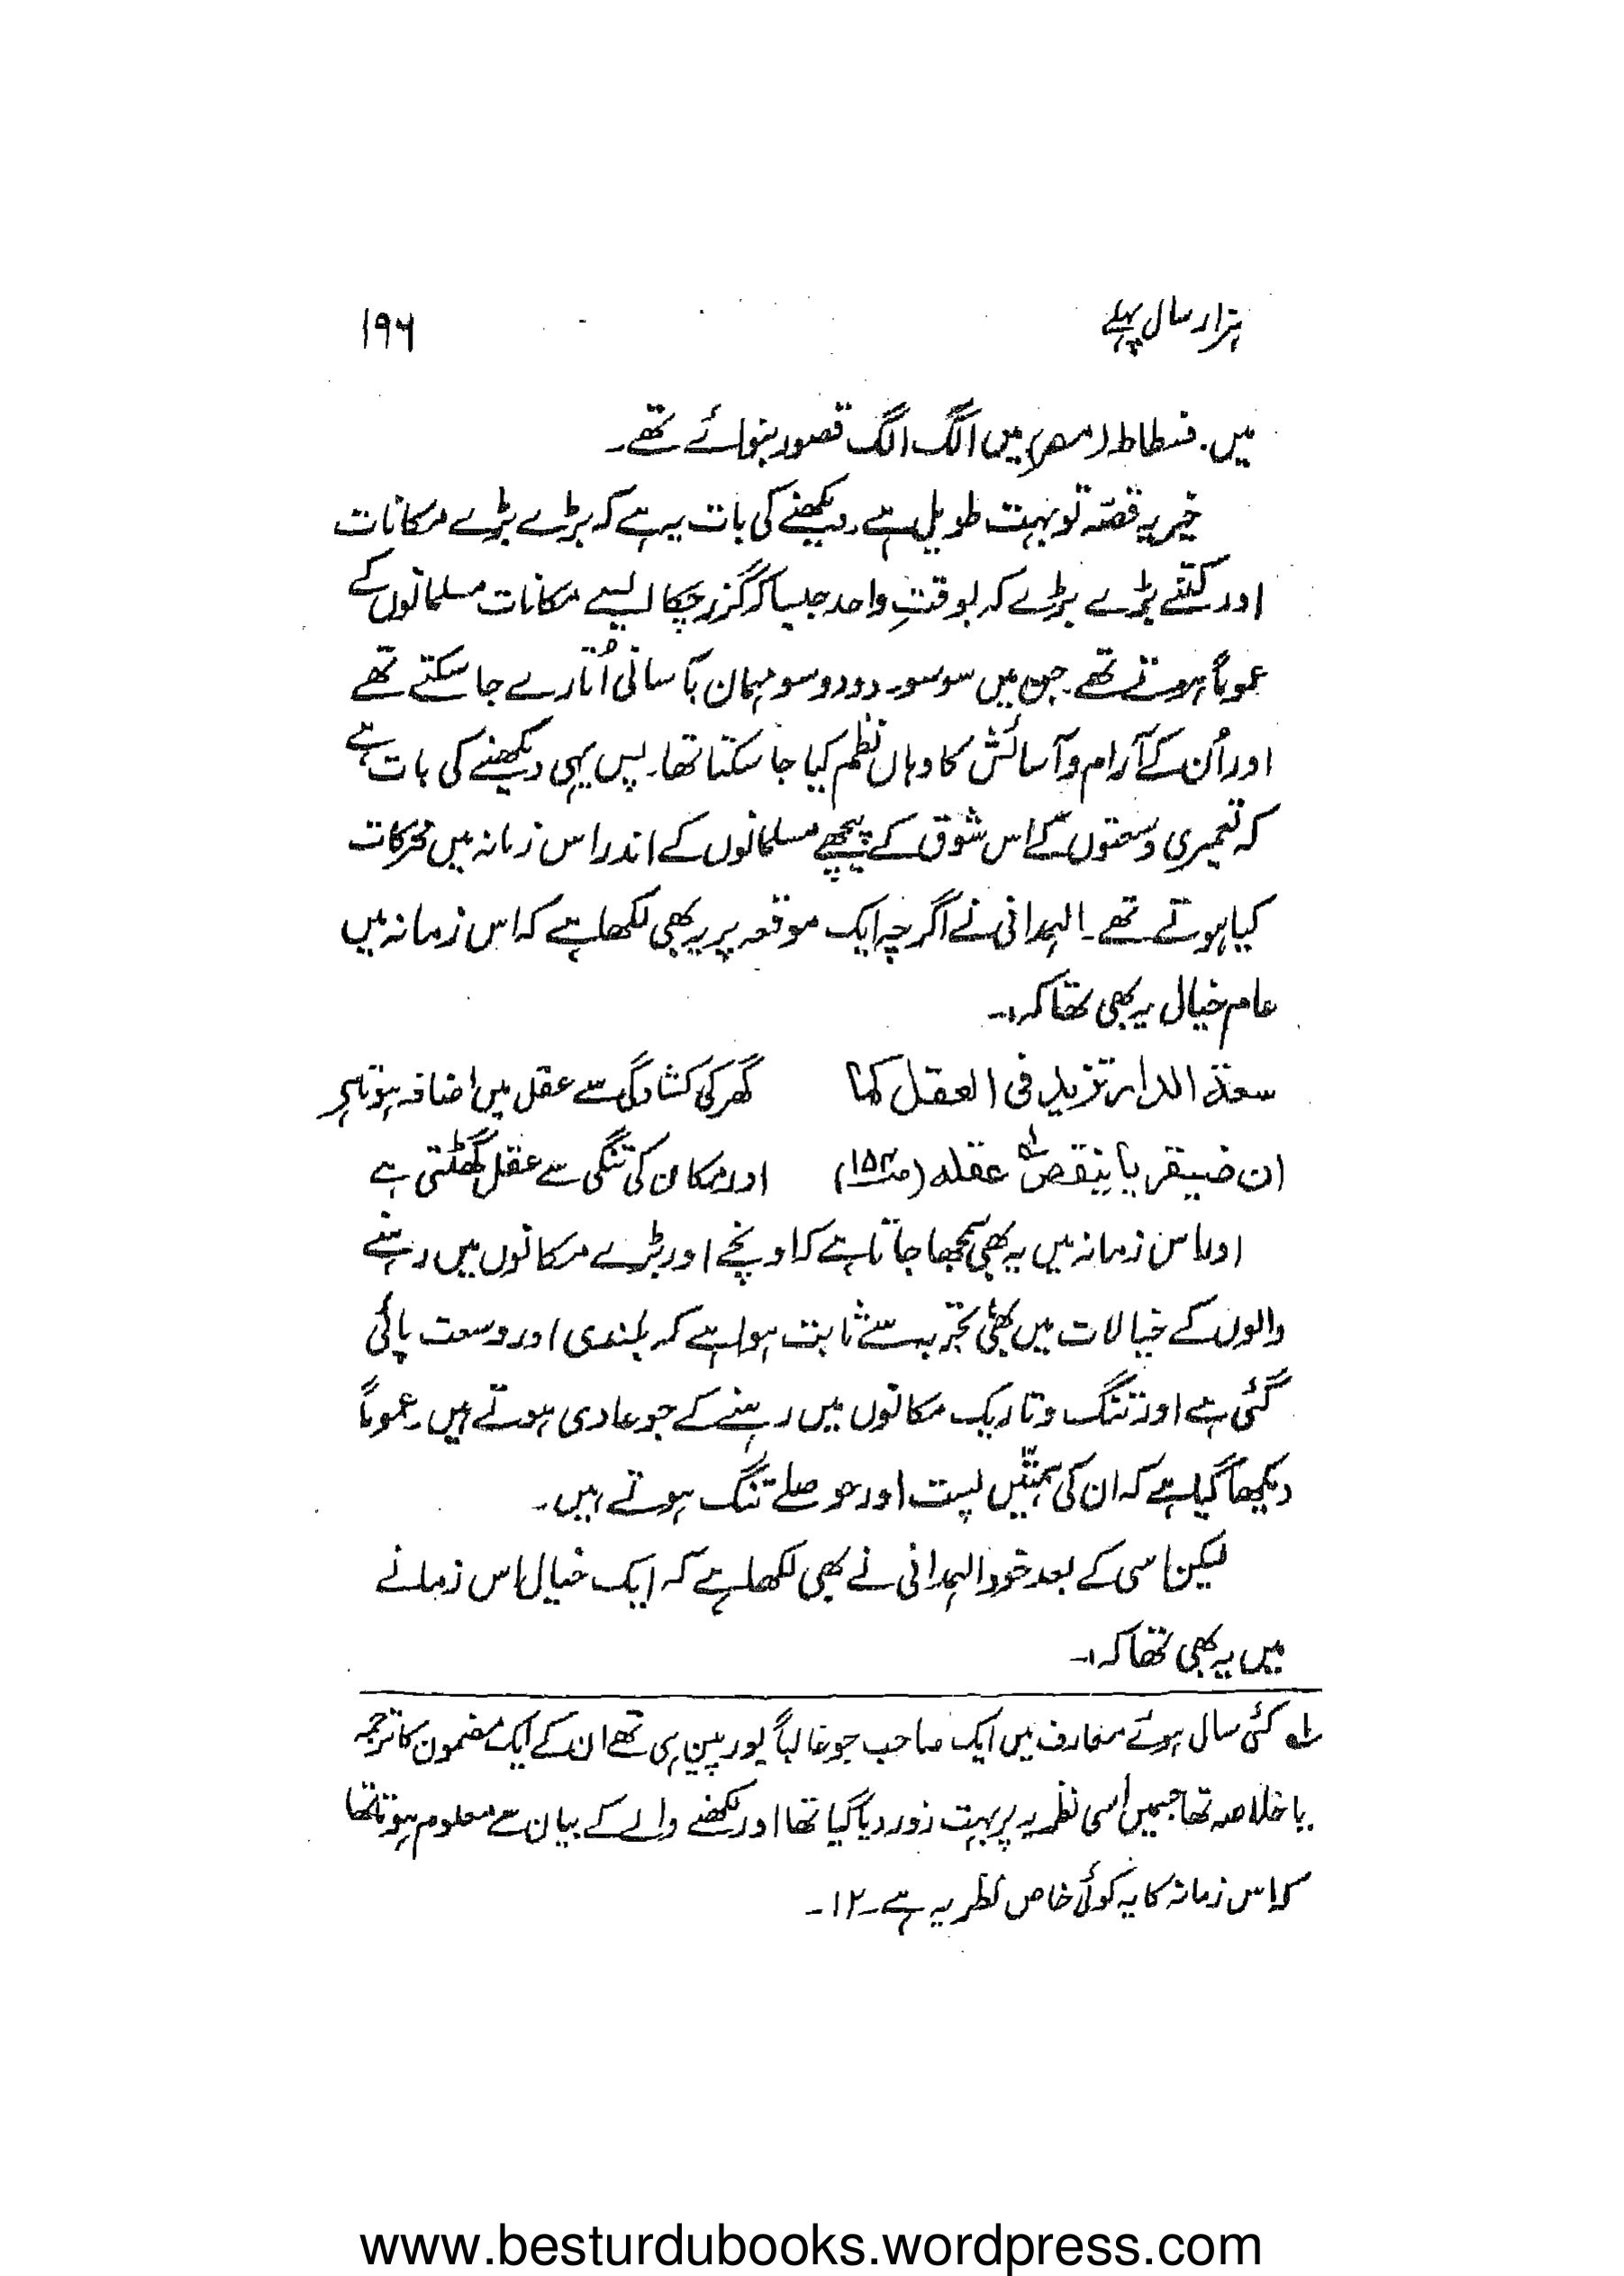 ہزار سال پہلے
۱۹۶
میں۔ فسطاط (مصر) میں الگ الگ قصور بنوائے تھے۔
خیر یہ قصّہ تو بہت طویل ہے۔ دیکھنے کی بات یہ ہے کہ بڑے بڑے مکانات
اور کتنے بڑے بڑے کہ بوقتِ واحد جیسا کہ گزر چکا ایسے مکانات مسلمانوں کے
عموماً ہوتے تھے۔ جن میں سو سو۔ دو دو سو مہمان بآسانی اُتارے جا سکتے تھے
اور اُن کے آرام و آسائش کا وہاں نظم کیا جا سکتا تھا۔ پس یہی دیکھنے کی بات ہے
کہ تعمیری وسعتوں کے اس شوق کے پیچھے مسلمانوں کے اندر اس زمانہ میں محرکات
کیا ہوتے تھے۔ الہمدانی نے اگرچہ ایک موقعہ پر یہ بھی لکھا ہے کہ اس زمانہ میں
عام خیال یہ بھی تھا کہ:۔
سعة الدار تزيد فى العقل كما گھر کی کشادگی سے عقل میں اضافہ ہوتا ہے
ان ضيقها ينقص لہ عقله (ص۱۵۳) اور مکان کی تنگی سے عقل گھٹتی ہے
اور اس زمانہ میں یہ بھی سمجھا جاتا ہے کہ اونچے اور بڑے مکانوں میں رہنے
والوں کے خیالات میں بھی تجربہ سے ثابت ہوا ہے کہ بلندی اور وسعت پائی
گئی ہے اور تنگ و تاریک مکانوں میں رہنے کے جو عادی ہوتے ہیں۔ عموماً
دیکھا گیا ہے کہ ان کی ہمتیں پست اور حوصلے تنگ ہوتے ہیں۔
لیکن اسی کے بعد خود الہمدانی نے بھی لکھا ہے کہ ایک خیال اس زمانے
میں یہ بھی تھا کہ:۔
لہ کئی سال ہوئے معارف میں ایک صاحب جو غالباً یورپین ہی تھے ان کے ایک مضمون کا ترجمہ
یا خلاصہ تھا جسمیں اسی نظریہ پر بہت زور دیا گیا تھا اور لکھنے والے کے بیان سے معلوم ہوتا تھا
کہ اس زمانہ کا یہ کوئی خاص نظریہ ہے۔ ۱۲۔
www.besturdubooks.wordpress.com